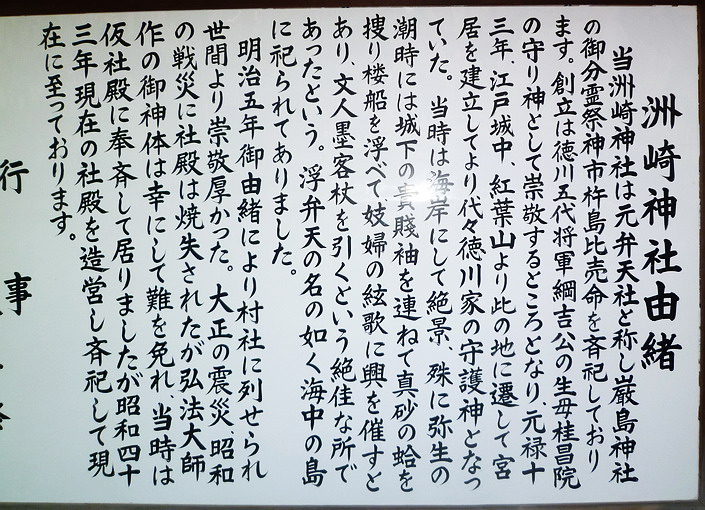 洲崎神社由緒
当洲崎神社は元弁天社と称し厳島神社
の御分霊祭神市杵島比売命を斉祀しており
ます。創立は徳川五代将軍綱吉公の生母桂昌院
の守り神として崇敬するところとなり、元禄十
三年、江戸城中、紅葉山より此の地に遷して宮
居を建立してより代々徳川家の守護神となっ
ていた。当時は海岸にして絶景、殊に弥生の
潮時には城下の貴賤袖を連ねて真砂の蛤を
捜り楼船を浮べて妓婦の絃歌に興を催すと
あり、文人墨客杖を引くという絶佳な所で
あったという。浮弁天の名の如く海中の島
に祀られてありました。
明治五年御由緒により村社に列せられ
世間より崇敬厚かった。大正の震災、昭和
の戦災に社殿は焼失されたが弘法大師
作の御神体は幸にして難を免れ、当時は
仮社殿に奉斉して居りましたが昭和四十
三年現在の社殿を造営し斉祀して現
在に至っております。
行事